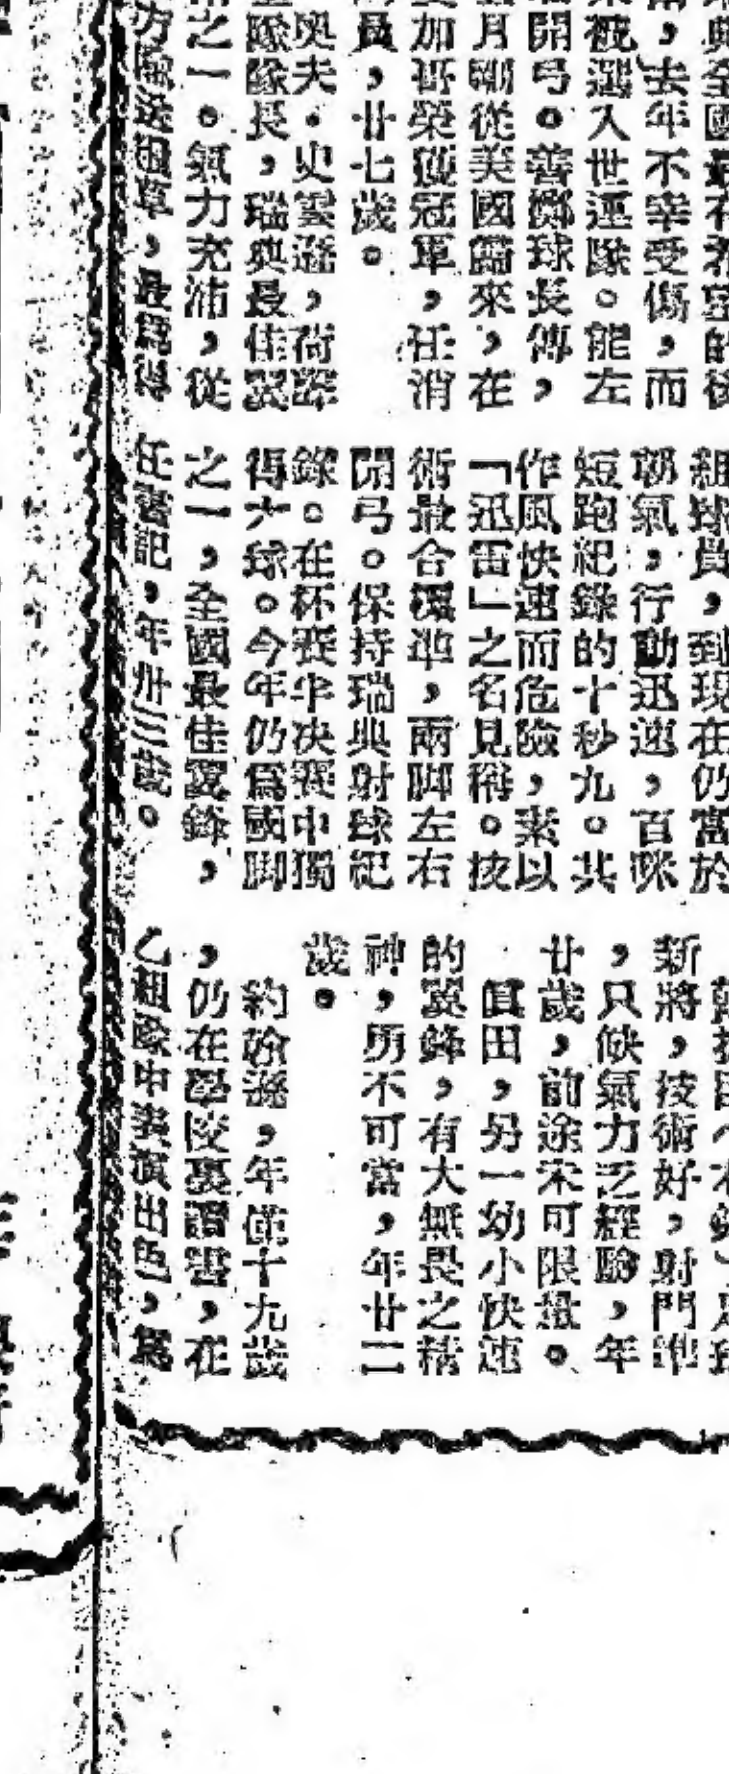 典全國最有希望的後
，去年不幸受傷，而
被選入世運隊。能左
開弓。善擲球長傳，
月剛從美國歸來，在
加哥榮獲冠軍，任消
員，廿七歲。
奧夫．史雲遜，荷
隊隊長，瑞典最佳翼
之一。氣力充沛，從
方隊，最為得
組球員，到現在仍富於
朝氣，行動迅速，百咪
短跑紀錄的十秒九。共
作風快速而危險，素以
「迅雷」之名見稱。技
術最合標準，兩脚左右
開弓。保持瑞典射球紀
錄。在杯賽半决賽中獨
得六球。今年仍為國脚
之一，全國最佳翼鋒，
任書記，年卅三歲。
新將，技術好，射門準
，只缺氣力乏經驗，年
廿歲，前途未可限量。
真田，另一幼小快速
的翼鋒，有大無畏之精
神，勇不可當，年廿二
歲。
約翰遜，年僅十九歲
，仍在學校裏讀書，在
乙組隊中表演出色，為